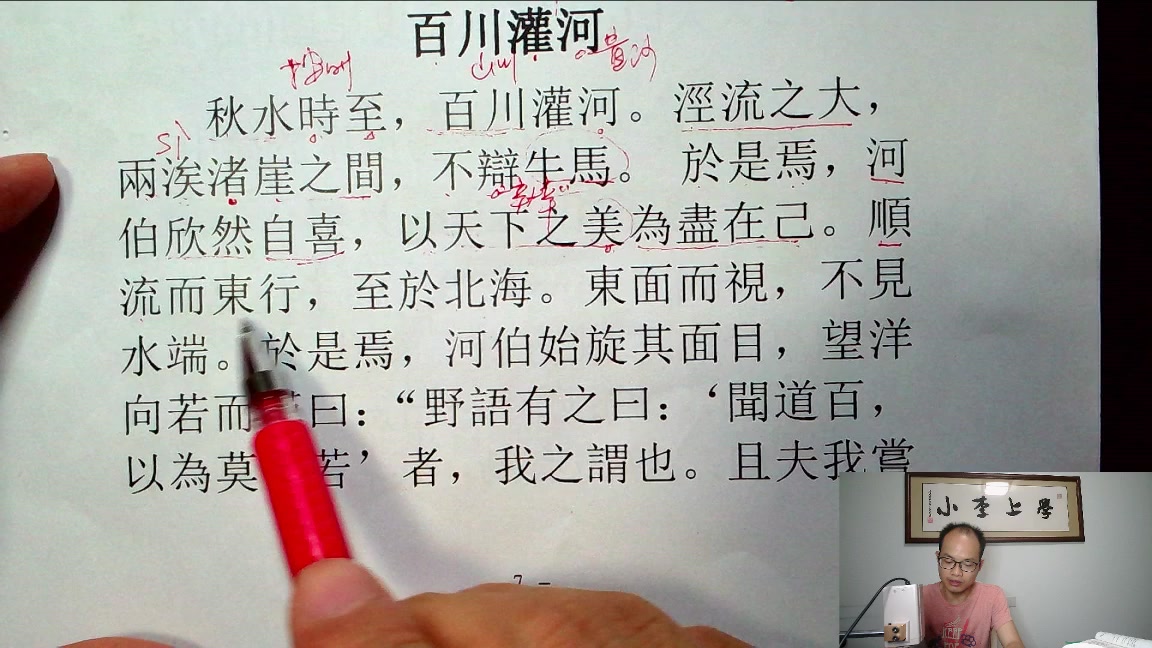 百川灌河
按时
山川
黄河
秋水時至，百川灌河。涇流之大，
sì
兩涘渚崖之間，不辯牛馬。 於是焉，河
伯欣然自喜，以天下之美為盡在己。順
流而東行，至於北海。東面而視，不見
水端。於是焉，河伯始旋其面目，望洋
向若而曰：“野語有之曰：‘聞道百，
以為莫若’者，我之謂也。且夫我嘗
小李上學